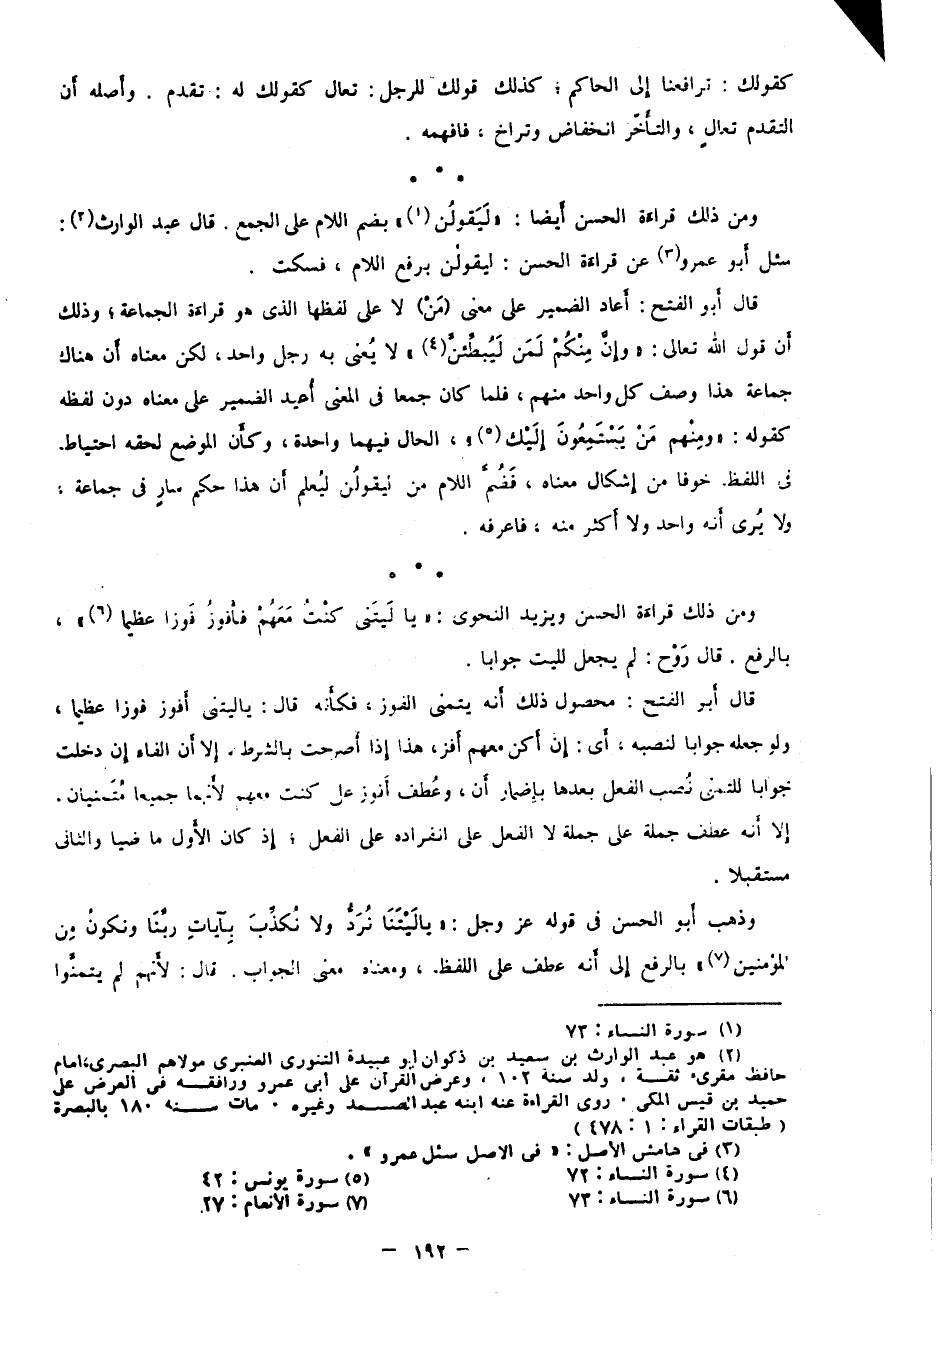 كقولك : ترافعنا إلى الحاكم ؛ كذلك قولك للرجل : تعال كقولك له : تقدم . وأصله أن
التقدم تعالٍ ، والتأخّر انخفاض وتراخ ، فافهمه .
* * *
ومن ذلك قراءة الحسن أيضا : « لَيَقولُن(١)» بضم اللام على الجمع . قال عبد الوارث(٢) :
سئل أبو عمرو(٣) عن قراءة الحسن : ليقولُن برفع اللام ، فسكت .
قال أبو الفتح : أعاد الضمير على معنى (مَنْ) لا على لفظها الذى هو قراءة الجماعة ؛ وذلك
أن قول الله تعالى : « وإنَّ مِنْكُمْ لَمَن لَيُبطِّئنَّ(٤)» لا يُعْنى به رجل واحد ، لكن معناه أن هناك
جماعة هذا وصف كل واحد منهم ، فلما كان جمعا فى المعنى أُعيد الضمير على معناه دون لفظه
كقوله : « ومِنْهم مَنْ يَسْتَمِعُونَ إِلَيْك(٥)» ، الحال فيهما واحدة ، وكأن الموضع لحقه احتياط
فى اللفظ خوفا من إشكال معناه ، فَضُمَّ اللام من ليقولُن ليُعلم أن هذا حكم سارٍ فى جماعة ،
ولا يُرى أنه واحد ولا أكثر منه ، فاعرفه .
* * *
ومن ذلك قراءة الحسن ويزيد النحوى : « يا لَيتَنى كنْتُ مَعَهُمْ فأفوزُ فَوزا عظيما (٦)» ،
بالرفع . قال رَوْح : لم يجعل لليت جوابا .
قال أبو الفتح : محصول ذلك أنه يتمنى الفوز ، فكأنه قال : ياليتنى أفوز فوزا عظيما ،
ولو جعله جوابا لنصبه ، أى : إن أكن معهم أفز ، هذا إذا أصرحت بالشرط ، إلا أن الفاء إن دخلت
جوابا للتمنى نُصب الفعل بعدها بإضمار أن ، وعُطف أفوز على كنت معهم لأنهما جميعا مُتَمنيان .
إلا أنه عطف جملة على جملة لا الفعل على انفراده على الفعل ؛ إذ كان الأول ماضيا والثانى
مستقبلا .
وذهب أبو الحسن فى قوله عز وجل : « يالَيْتَنَا نُرَدُّ ولا نُكذِّبَ بِآياتِ ربِّنَا ونكونُ مِن
المؤمنين(٧)» بالرفع إلى أنه عطف على اللفظ ، ومعناه معنى الجواب . قال : لأنهم لم يتمنَّوا
(١) سورة النساء : ٧٣
(٢) هو عبد الوارث بن سعيد بن ذكوان أبو عبيدة التنورى العنبرى مولاهم البصرى ، امام
حافظ مقرىء ثقة ، ولد سنة ١٠٢ ، وعرض القرآن على ابى عمرو ورافقه فى العرض على
حميد بن قيس المكى ، روى القراءة عنه ابنه عبد الصمد وغيره ، مات سنة ١٨٠ بالبصرة
( طبقات القراء : ١ : ٤٧٨ )
(٣) فى هامش الأصل : « فى الاصل سئل عمرو » .
(٤) سورة النساء : ٧٢
(٥) سورة يونس : ٤٢
(٦) سورة النساء : ٧٣
(٧) سورة الأنعام : ٢٧
- ١٩٢ -